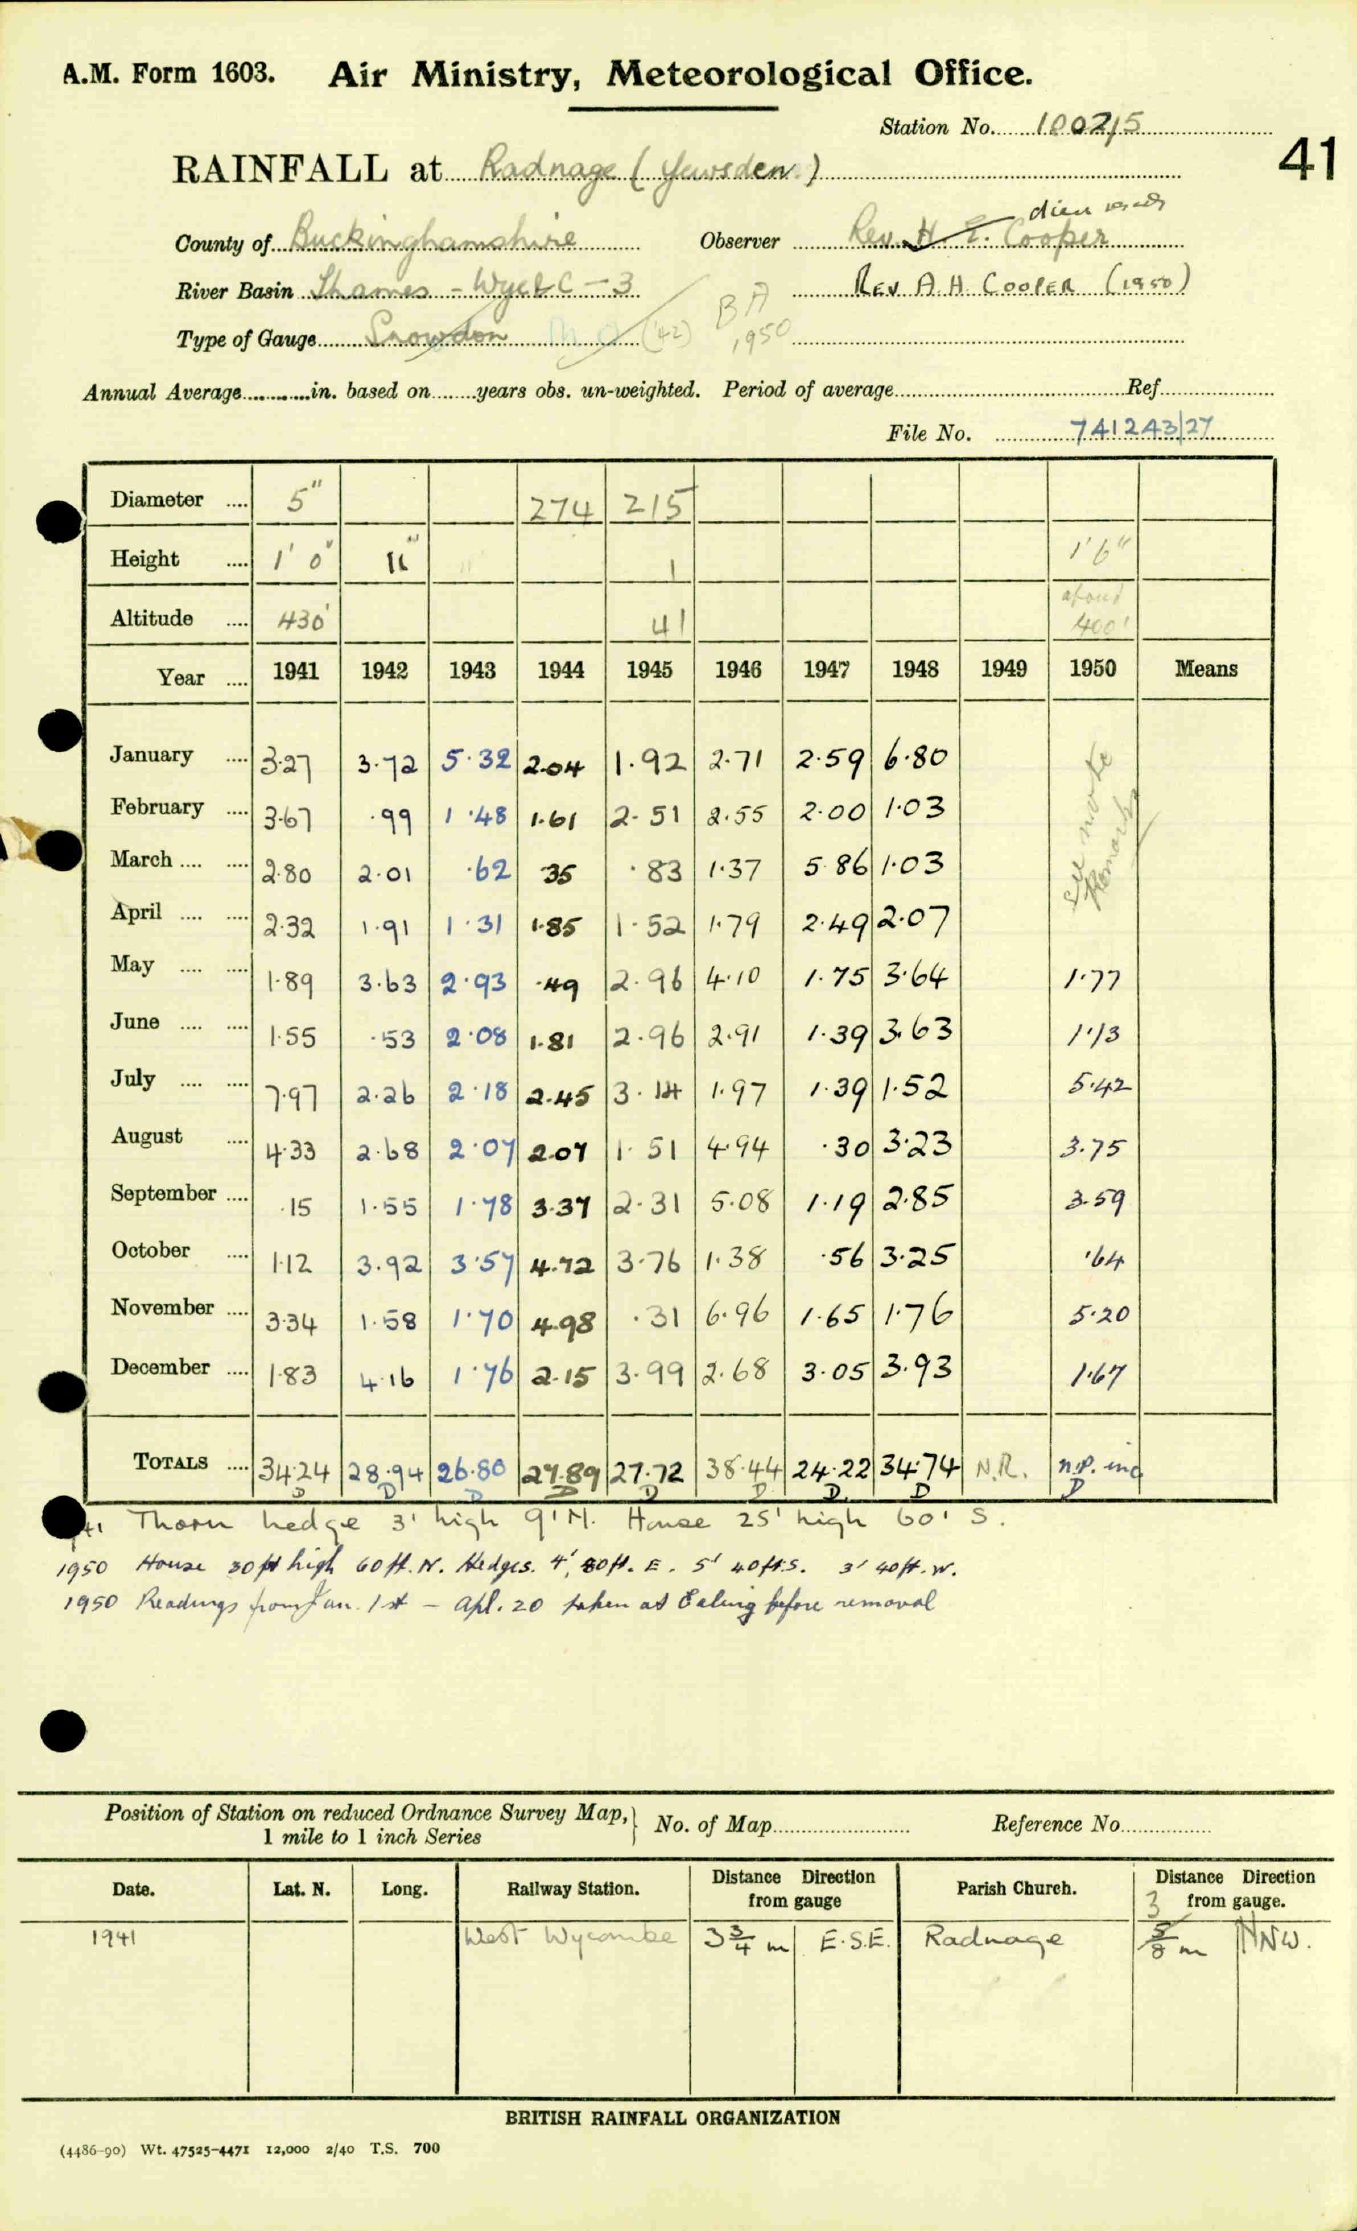 A.M. Form 1603. Air Ministry, Meteorological Office.
Station No. 1002/5
41
RAINFALL at Radnage (Yewsden)
County of Buckinghamshire Observer Rev. H. E. Cooper died
River Basin Thames - Wye LC - 3 REV A H COOPER (1950)
Type of Gauge Snowdon M O ('42) BA 1950
Annual Average in. based on years obs. un-weighted. Period of average Ref
File No. 741243/27
Diameter 5" 274 215
Height 1' 0" 11" 1 1' 6"
Altitude 430' 41 about 400'
Year 1941 1942 1943 1944 1945 1946 1947 1948 1949 1950 Means
January 3.27 3.72 5.32 2.04 1.92 2.71 2.59 6.80 See note Remarks
February 3.67 .99 1.48 1.61 2.51 2.55 2.00 1.03
March 2.80 2.01 .62 35 .83 1.37 5.86 1.03
April 2.32 1.91 1.31 1.85 1.52 1.79 2.49 2.07
May 1.89 3.63 2.93 .49 2.96 4.10 1.75 3.64 1.77
June 1.55 .53 2.08 1.81 2.96 2.91 1.39 3.63 1.13
July 7.97 2.26 2.18 2.45 3.14 1.97 1.39 1.52 5.42
August 4.33 2.68 2.07 2.07 1.51 4.94 .30 3.23 3.75
September .15 1.55 1.78 3.37 2.31 5.08 1.19 2.85 3.59
October 1.12 3.92 3.57 4.72 3.76 1.38 .56 3.25 .64
November 3.34 1.58 1.70 4.98 .31 6.96 1.65 1.76 5.20
December 1.83 4.16 1.76 2.15 3.99 2.68 3.05 3.93 1.67
TOTALS 34.24 28.94 26.80 27.89 27.72 38.44 24.22 34.74 N.R. n.p. inc
D D D D D D D D D
41 Thorn hedge 3' high 9' N. House 25' high 60' S.
1950 House 30ft high 60ft. N. Hedges. 4', 80ft. E. 5' 40ft S. 3' 40ft. W.
1950 Readings from Jan. 1st - Apl. 20 taken at Ealing before removal
Position of Station on reduced Ordnance Survey Map, No. of Map Reference No
1 mile to 1 inch Series
Date. Lat. N. Long. Railway Station. Distance Direction from gauge Parish Church. Distance Direction from gauge.
3
1941 West Wycombe 3 3/4 m E.S.E. Radnage 5/8 m NNW.
BRITISH RAINFALL ORGANIZATION
(4486-90) Wt. 47525-4471 12,000 2/40 T.S. 700